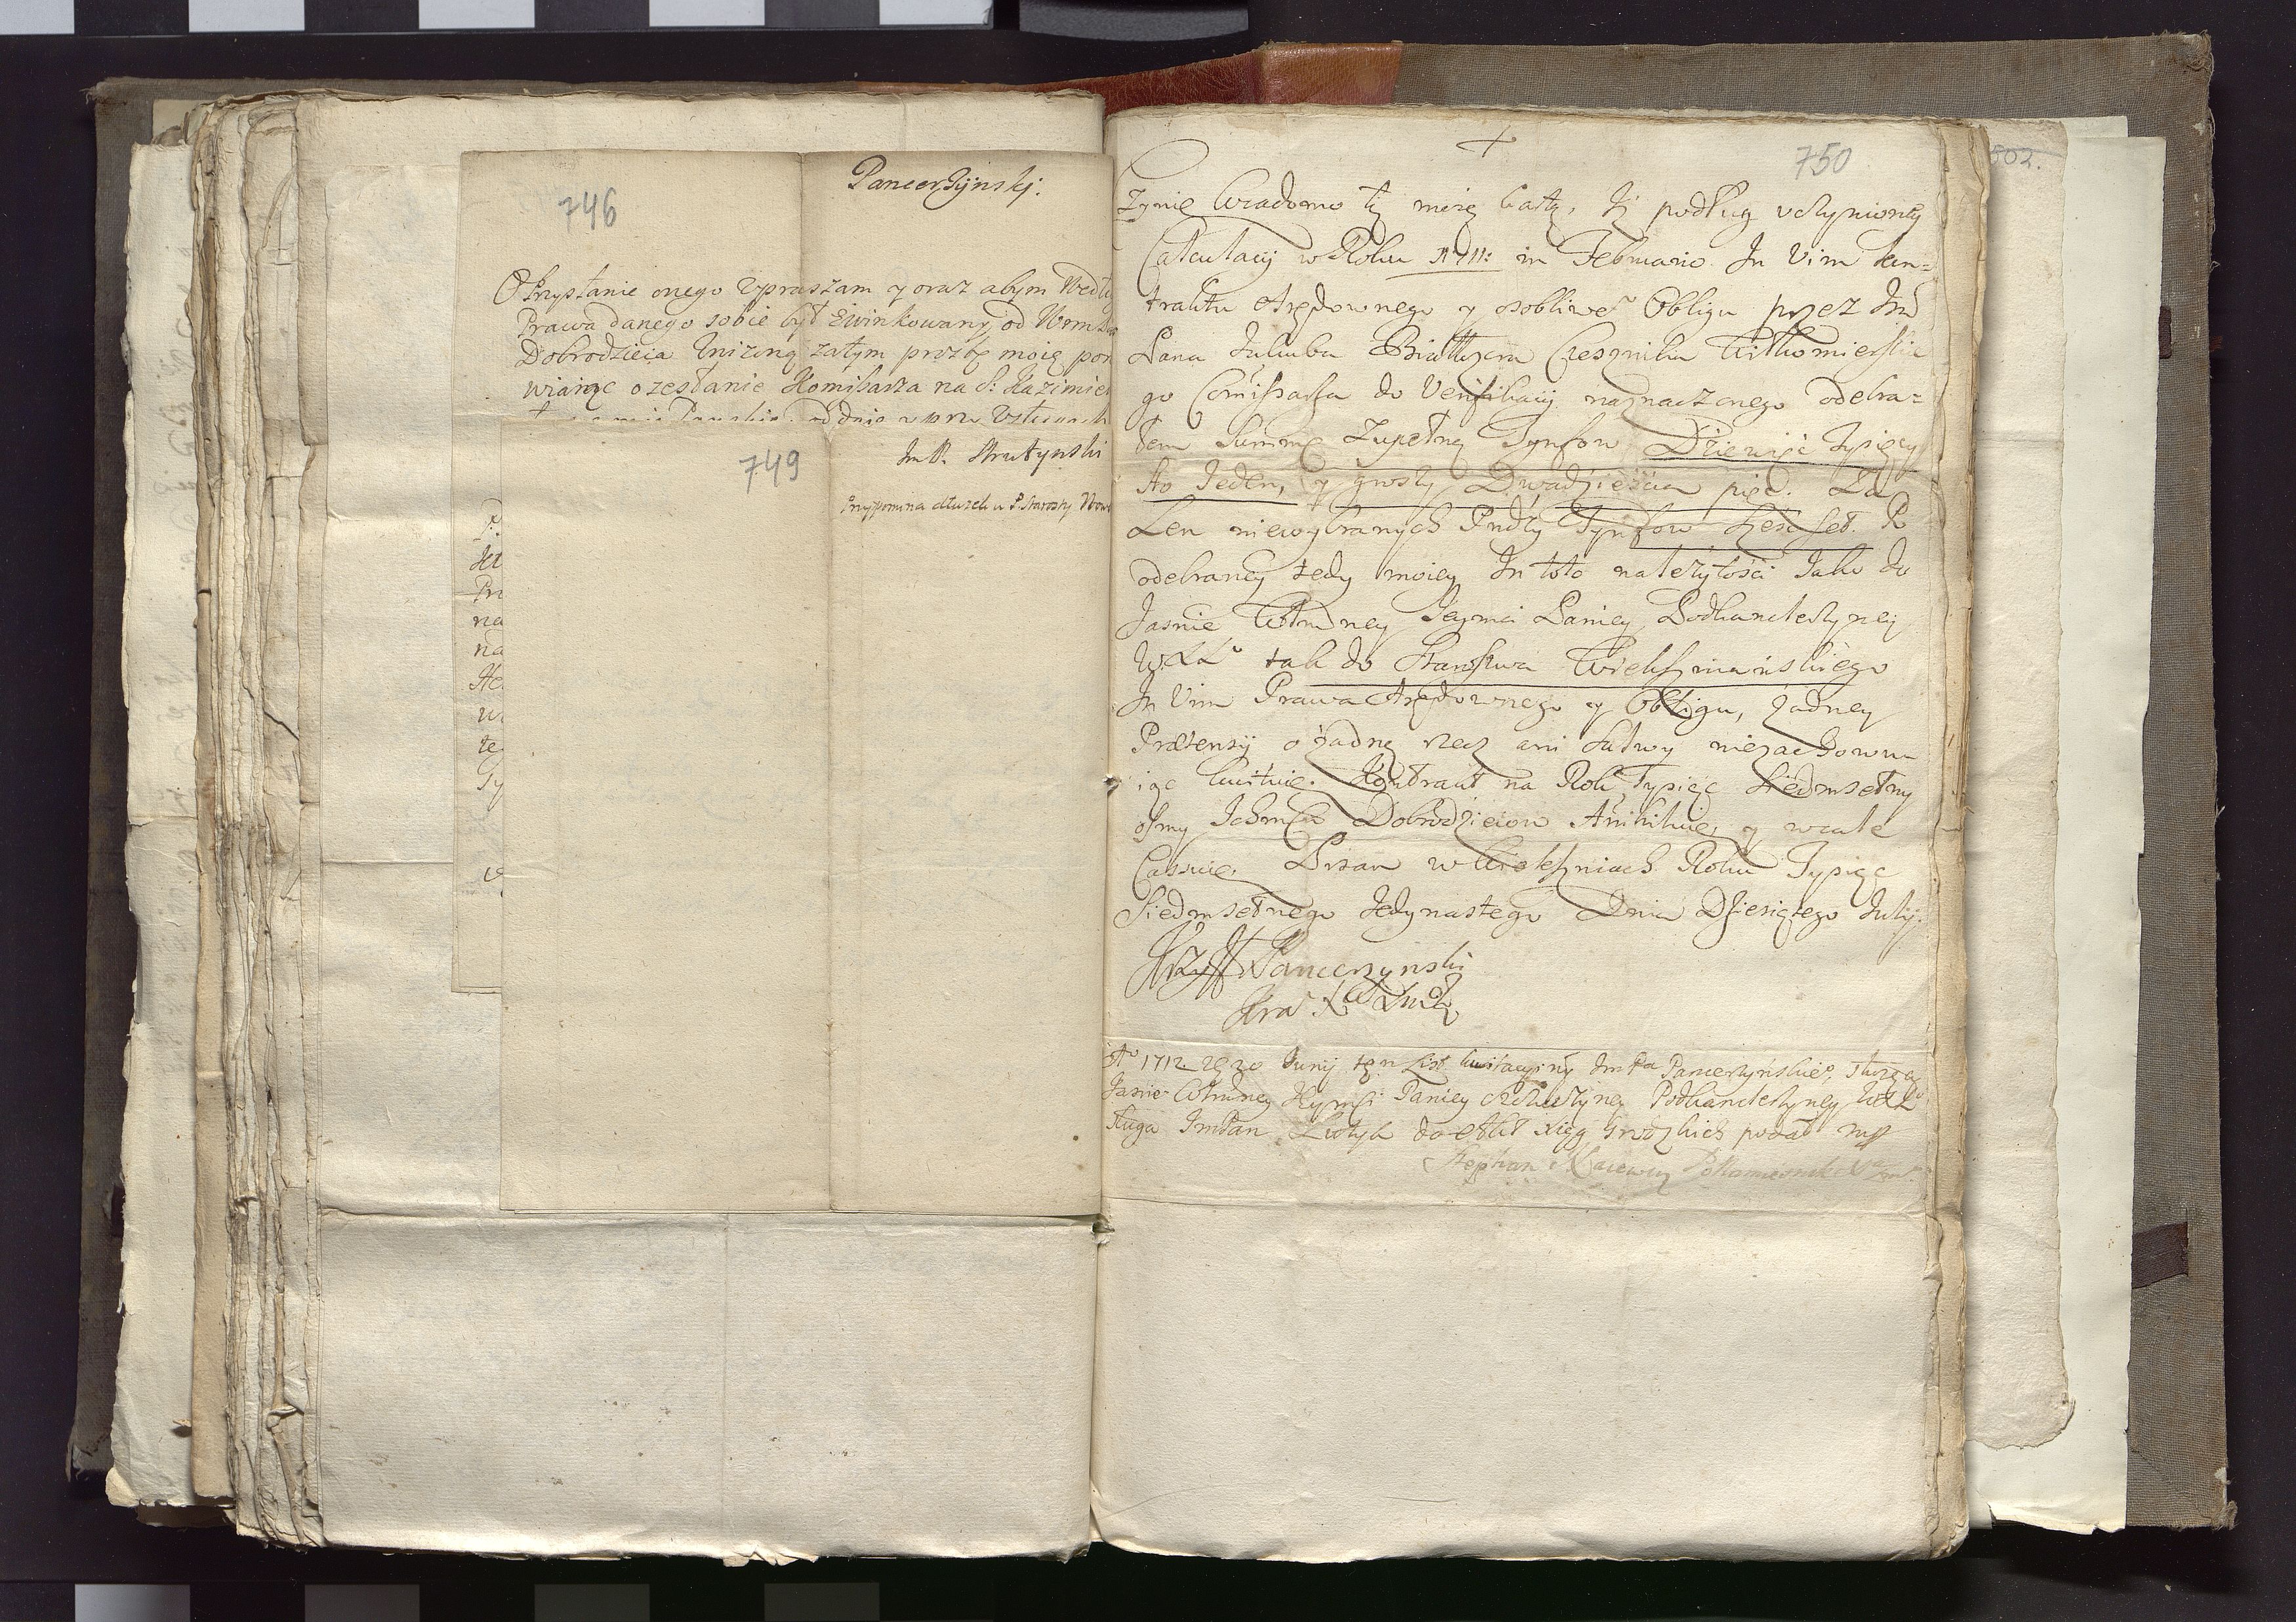 746
Pancerzÿnskj.
O Przysłanie onego Upraszam y oraz abym Wedłu
Prawa danego sobie był Ewinkowany, od Wmm
Dobrodzieia Unizoną zatym prozbę moię pon
wiaiąc o zesłanie Komissarza na S: Kazimie
749
Im P. Strutynski
Przypomina dłuzek u P. Starosty
750
Czynię Wiadomo tą moią kartą, Iż podług uczynioney
Calculacij w Roku 1711: in Februario In Vim kon=
traktu Arędownego y osobliwe° Obligu przez Im
Pana Jakuba Czesznika Wiłkomierskie
go Comissarza do Verifikacij naznaczonego odebra=
łem Summę zupełną Tynfow Dziewięć Tysięcy
sto Jeden, y groszy Dwadzieścia pięć. Za
Len niewybranych Tynfow sześć set.
odebraney tedy moiey In toto nalezytości Jako do
Jasnie Wielmozney Jeymci Paniey Podkanclerzyney
WXL° tak do Starostwa Wiekszniańskiego
In Vim Prawa Arędownego y Obligu, żadney
Prætensij o żadną rzecz ani salwy niezachowu=
iąc kwituię. Kontrakt na Rok Tysiąc Siedmsetny
osmy Ichmciow Dobrodzieiow Anihiluię, y wcale
Cassuię, Pisan w Wiekszniach Roku Tysiąc
Siedmsetnego Jedynastego Dnia Dziesiątego Julij.
Krzysztof Pancerzynski
A° 1712 20 Junij ten List kwitacyiny ImPa Pancerzyńskie°, służący
Jasnie Wielmozney Jeymci Paniey Podkanclerzyney WXL°
sługa ImPan do Akt xiąg Grodzkich podał mp
Stephan